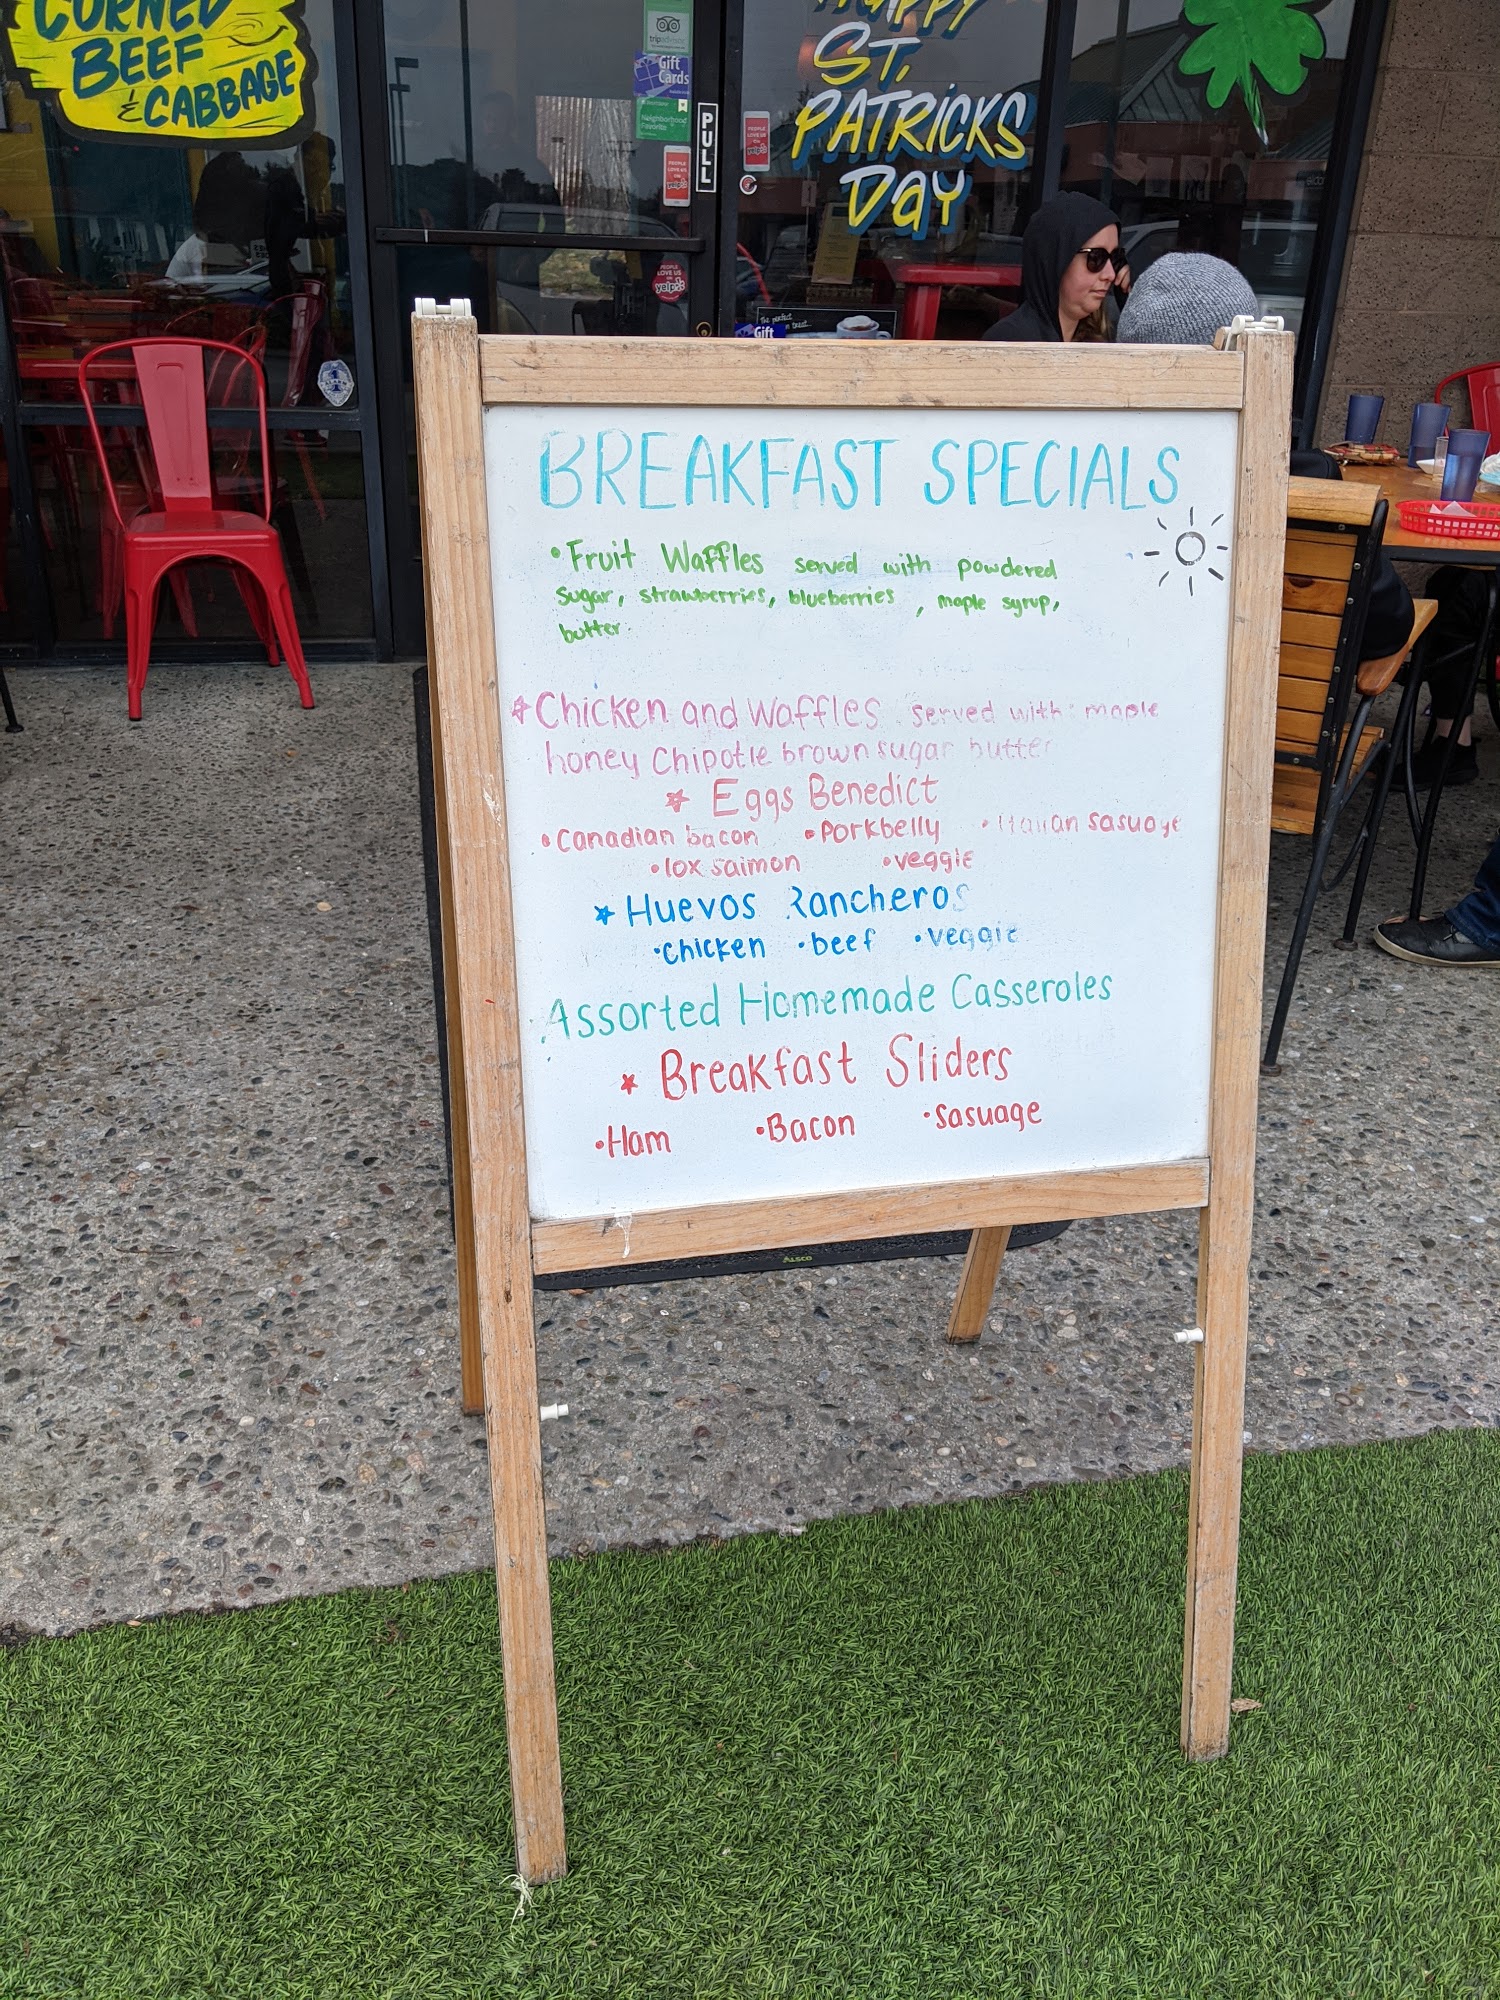 CORNED
BEEF
& CABBAGE
tripadvisor
Gift
Cards
Neighborhood
Favorite
PEOPLE
LOVE US
ON
yelp
PULL
PEOPLE
LOVE US
ON
yelp
HAPPY
ST.
PATRICKS
DAY
PEOPLE
LOVE US
ON
yelp
The perfect
Gift
BREAKFAST SPECIALS
• Fruit Waffles served with powdered
sugar, strawberries, blueberries , maple syrup,
butter.
Chicken and Waffles served with: maple
honey Chipotle brown sugar butter
Eggs Benedict
• Canadian bacon • Porkbelly • Italian sasuage
• lox salmon • veggie
Huevos Rancheros
• chicken • beef • veggie
Assorted Homemade Casseroles
Breakfast Sliders
• Ham • Bacon • Sasuage
ALSCO